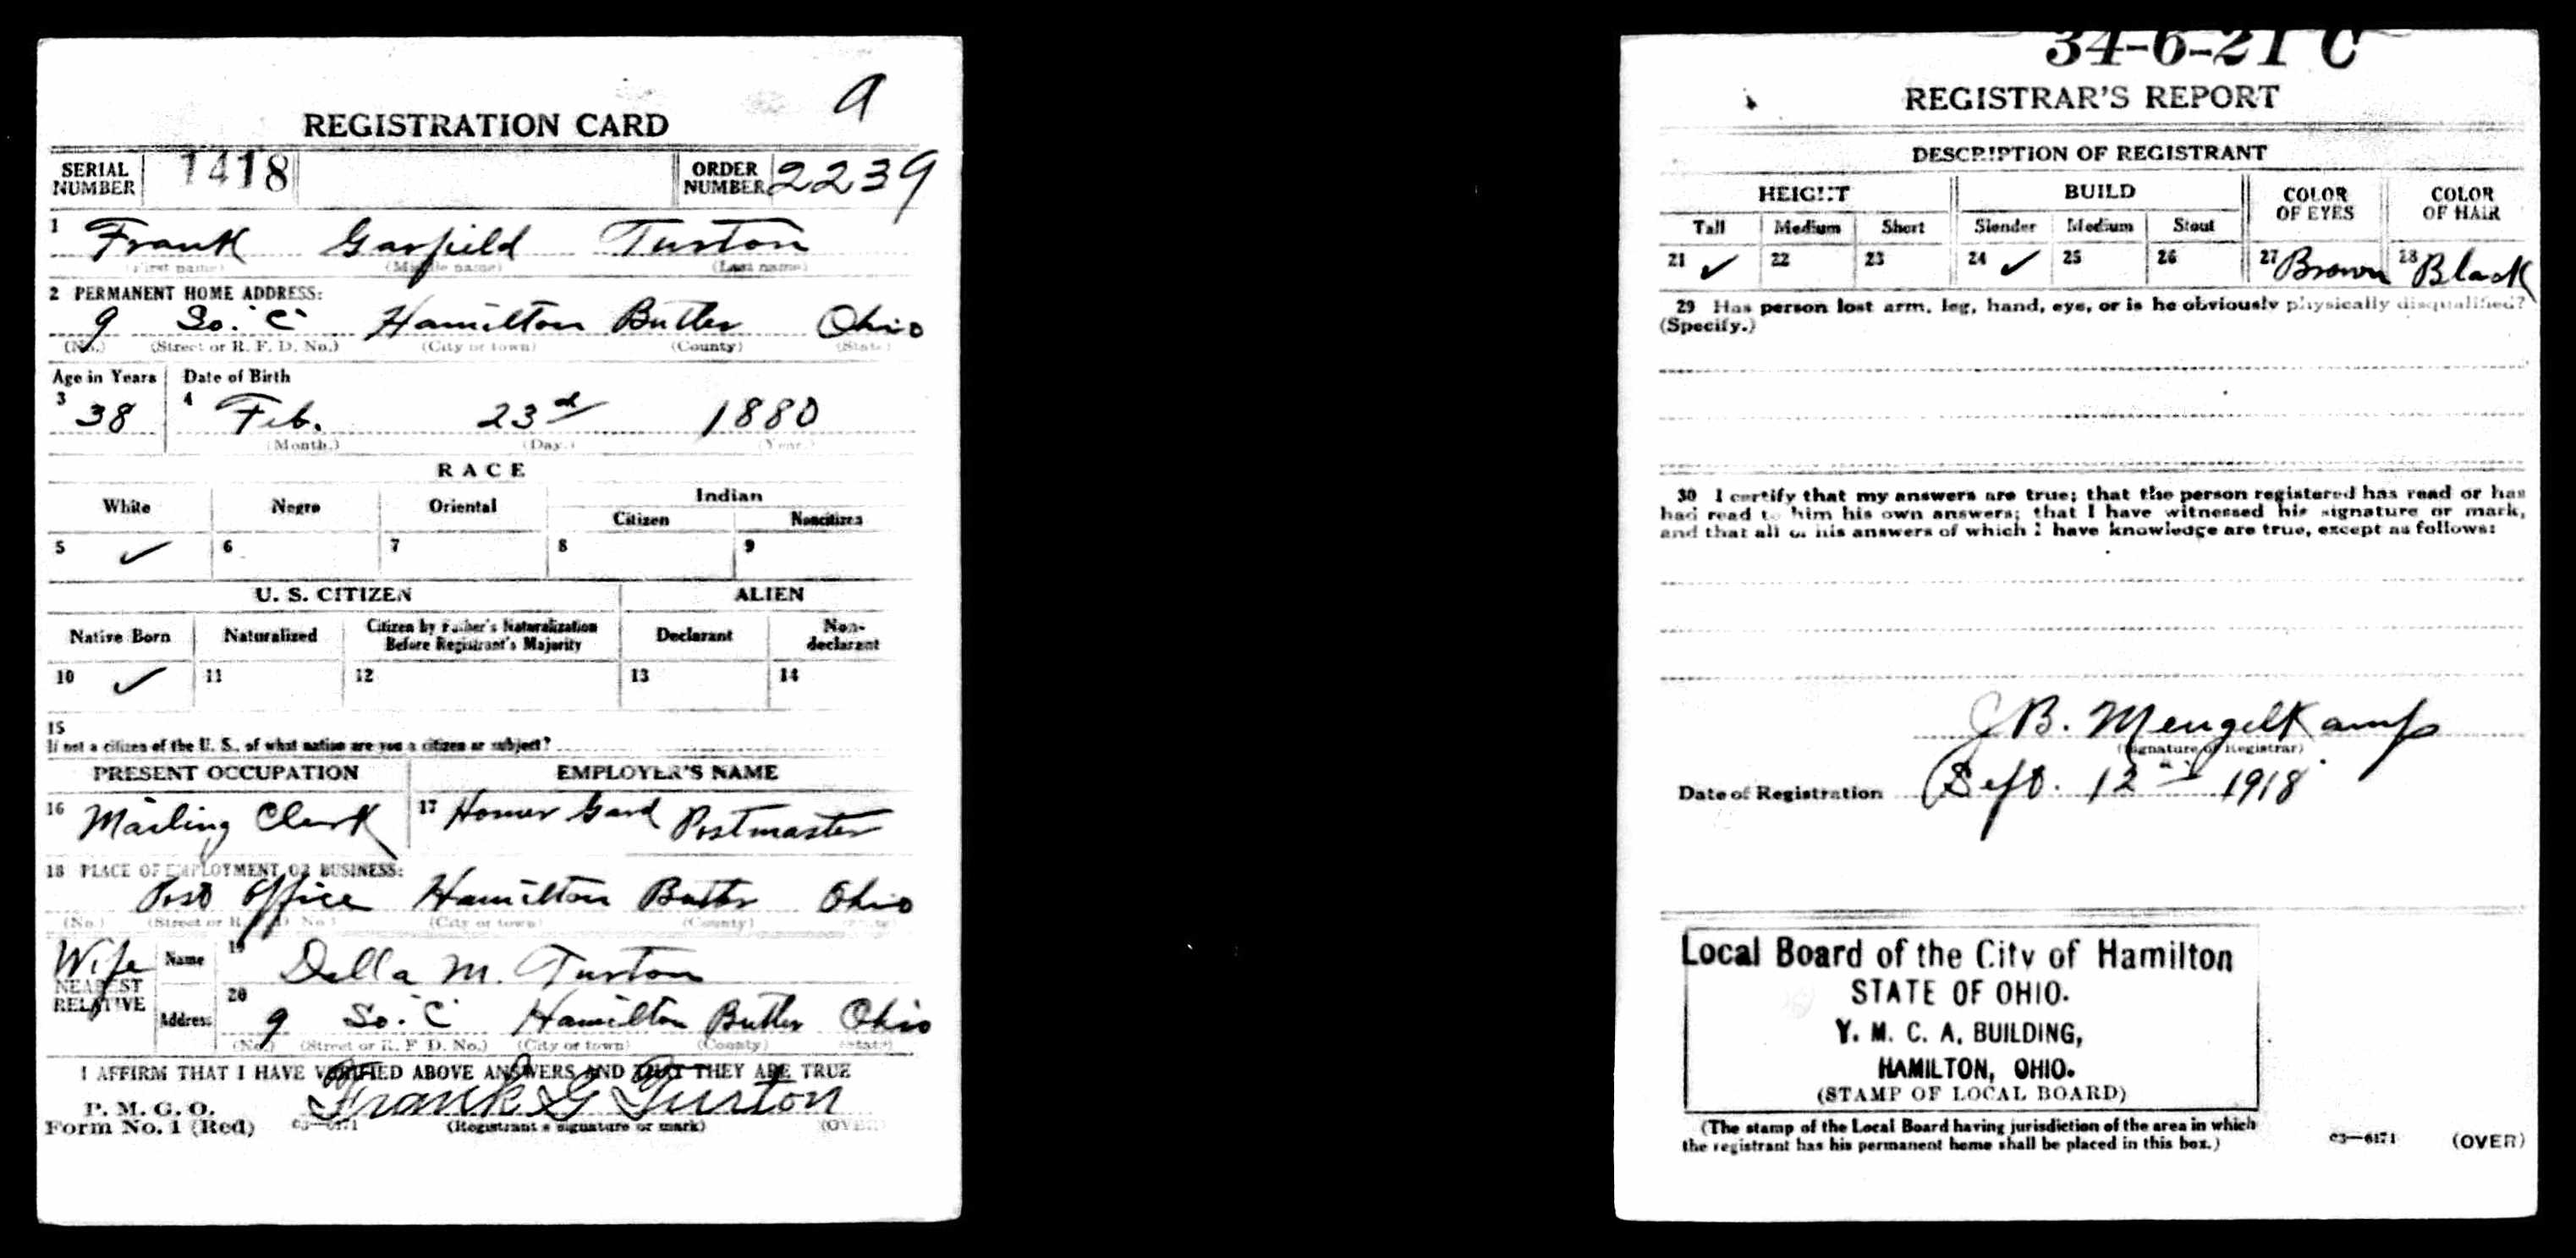 a
REGISTRATION CARD
SERIAL NUMBER 1418 ORDER NUMBER 2239
1 Frank Garfield Turton
(First name) (Middle name) (Last name)
2 PERMANENT HOME ADDRESS:
9 So. "C" Hamilton Butler Ohio
(No.) (Street or R. F. D. No.) (City or town) (County) (State)
Age in Years Date of Birth
3 38 4 Feb. 23rd 1880
(Month.) (Day.) (Year.)
RACE
White Negro Oriental Indian
Citizen Noncitizen
5 ✓ 6 7 8 9
U. S. CITIZEN ALIEN
Native Born Naturalized Citizen by Father's Naturalization Before Registrant's Majority Declarant Non-declarant
10 ✓ 11 12 13 14
15
If not a citizen of the U. S., of what nation are you a citizen or subject?
PRESENT OCCUPATION EMPLOYER'S NAME
16 Mailing Clerk 17 Homer Gard Postmaster
18 PLACE OF EMPLOYMENT OR BUSINESS:
Post Office Hamilton Butler Ohio
(No.) (Street or R. F. D. No.) (City or town) (County) (State)
Wife
NEAREST RELATIVE
Name 19 Della M. Turton
Address 20 9 So. "C" Hamilton Butler Ohio
(No.) (Street or R. F. D. No.) (City or town) (County) (State)
I AFFIRM THAT I HAVE VERIFIED ABOVE ANSWERS AND THAT THEY ARE TRUE
P. M. G. O.
Form No. 1 (Red) 03—6171 Frank G Turton
(Registrant's signature or mark) (OVER)
34-6-21 C
REGISTRAR'S REPORT
DESCRIPTION OF REGISTRANT
HEIGHT BUILD COLOR OF EYES COLOR OF HAIR
Tall Medium Short Slender Medium Stout
21 ✓ 22 23 24 ✓ 25 26 27 Brown 28 Black
29 Has person lost arm, leg, hand, eye, or is he obviously physically disqualified?
(Specify.)
30 I certify that my answers are true; that the person registered has read or has
had read to him his own answers; that I have witnessed his signature or mark,
and that all of his answers of which I have knowledge are true, except as follows:
J B. Mengelkamp
(Signature of Registrar)
Date of Registration Sept. 12th 1918
Local Board of the City of Hamilton
STATE OF OHIO.
Y. M. C. A. BUILDING,
HAMILTON, OHIO.
(STAMP OF LOCAL BOARD)
(The stamp of the Local Board having jurisdiction of the area in which
the registrant has his permanent home shall be placed in this box.)
03—6171 (OVER)